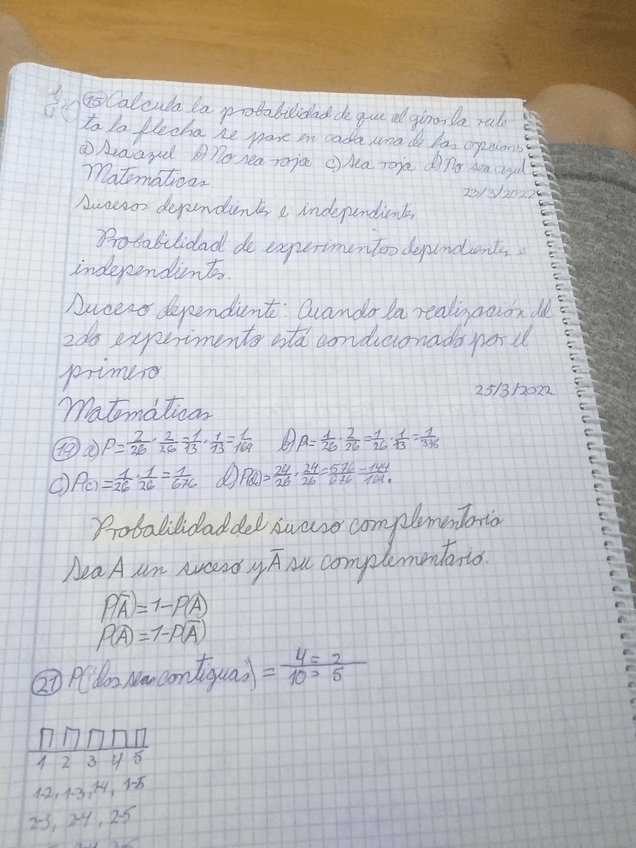 15 Calcula la probabilidad de que al girar la rule
ta la flecha se pare en cada una de las opciones
a) Sea azul b) No sea roja c) Sea roja d) No sea azul
Matemáticas 23/3/2022
Sucesos dependientes e independientes
Probabilidad de experimentos dependientes e
independientes.
Suceso dependiente: Cuando la realización del
2do experimento está condicionado por el
primero
25/3/2022
Matemáticas
19 a) P= 2/26 · 2/26 = 1/13 · 1/13 = 1/169 b) P= 1/26 · 2/26 = 1/26 · 1/13 = 1/338
c) P(c) = 1/26 · 1/26 = 1/676 d) P(d)= 24/26 · 24/26 = 576/676 = 144/169.
Probabilidad del suceso complementario
Sea A un suceso y Ā su complementario.
P(Ā)=1-P(A)
P(A)=1-P(Ā)
21 P(dos sean contiguas) = 4/10 = 2/5
1 2 3 4 5
1-2, 1-3, 1-4, 1-5
2-3, 2-4, 2-5